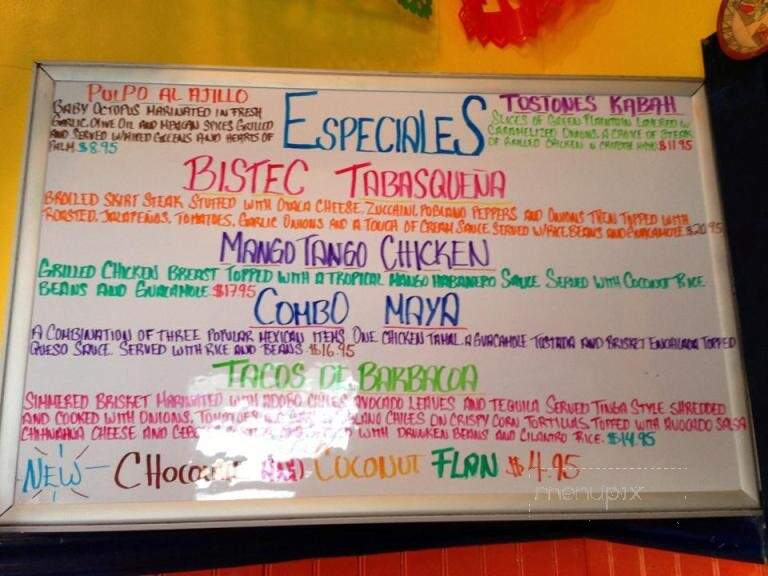 PULPO AL AJILLO
BABY OCTOPUS MARINATED IN FRESH
GARLIC, OLIVE OIL AND MEXICAN SPICES GRILLED
AND SERVED W/MIXED GREENS AND HEARTS OF
PALM. $8.95
ESPECIALES
TOSTONES KABAH
SLICES OF GREEN PLANTAIN LAYERED W/
CARAMELIZED ONIONS, A CHOICE OF STEAK
OR GRILLED CHICKEN N CHIPOTLE MAYO $11.95
BISTEC TABASQUEÑA
BROILED SKIRT STEAK STUFFED WITH OAXACA CHEESE, ZUCCHINI, POBLANO PEPPERS AND ONIONS THEN TOPPED WITH
ROASTED, JALAPEÑOS, TOMATOES, GARLIC ONIONS AND A TOUCH OF CREAM SAUCE SERVED W/RICE BEANS AND GUACAMOLE $20.95
MANGO TANGO CHICKEN
GRILLED CHICKEN BREAST TOPPED WITH A TROPICAL MANGO HABANERO SAUCE SERVED WITH COCONUT RICE
BEANS AND GUACAMOLE $17.95
COMBO MAYA
A COMBINATION OF THREE POPULAR MEXICAN ITEMS ONE CHICKEN TAMAL, A GUACAMOLE TOSTADA AND BRISKET ENCHILADA TOPPED
QUESO SAUCE. SERVED WITH RICE AND BEANS $16.95
TACOS DE BARBACOA
SIMMERED BRISKET MARINATED WITH ADOBO CHILES, AVOCADO LEAVES AND TEQUILA SERVED TINGA STYLE SHREDDED
AND COOKED WITH ONIONS, TOMATOES CHILES ON CRISPY CORN TORTILLAS TOPPED WITH AVOCADO SALSA
CHIHUAHUA CHEESE AND WITH DRUNKEN BEANS AND CILANTRO RICE. $14.95
NEW CHOCOLATE AND COCONUT FLAN $4.95
menupix